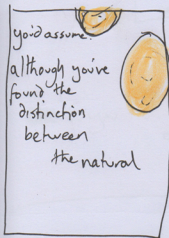 you'd assume.
although you've
found the
distinction
between
the natural